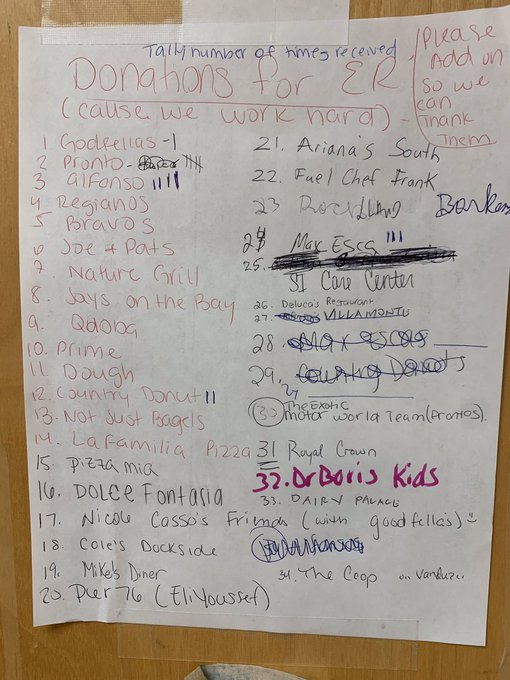 Tally number of times received
Donations for ER
(cause we work hard) -
Please
Add on
so we
can
Thank
Them
1 Godfellas - 1
2 Pronto -
3 alfonso IIII
4 Regianos
5 Bravos
6 Joe + Pats
7 Nature Grill
8. Jays on the Bay
9. Qdoba
10. Prime
11 Dough
12. Country Donut II
13. Not Just Bagels
14. La Familia Pizza
15. Pizza mia
16. DOLCE Fontaria
17. Nicole Casso's Friends (with goodfella's)
18. Cole's Dockside
19. Mike's Diner
20. Pier 76 (Eli Youssef)
21. Ariana's South
22. Fuel Chef Frank
23 Rockland
24 Max Escs III
25.
SI Care Center
26. Deluca's Restaurant
27. VILLAMONTE
28.
29.
30 The Exotic
motor world Team (Prontos).
31 Royal Crown
32. Dr Boris Kids
33. DAIRY PALACE
34. The Coop on Vanduzer